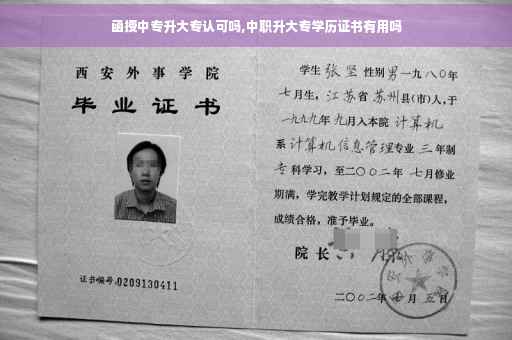 函授中专升大专认可吗,中职升大专学历证书有用吗
西安外事学院
毕业证书
证书编号:0209130411
学生 张坚 性别 男 一九八〇年
七月生, 江苏省 苏州 县(市)人,于
一九九九年 九月入本院 计算机
系 计算机信息管理 专业 三 年制
专科学习, 至二〇〇二年 七月修业
期满, 学完教学计划规定的全部课程,
成绩合格, 准予毕业。
院长
二〇〇二年 月 五日